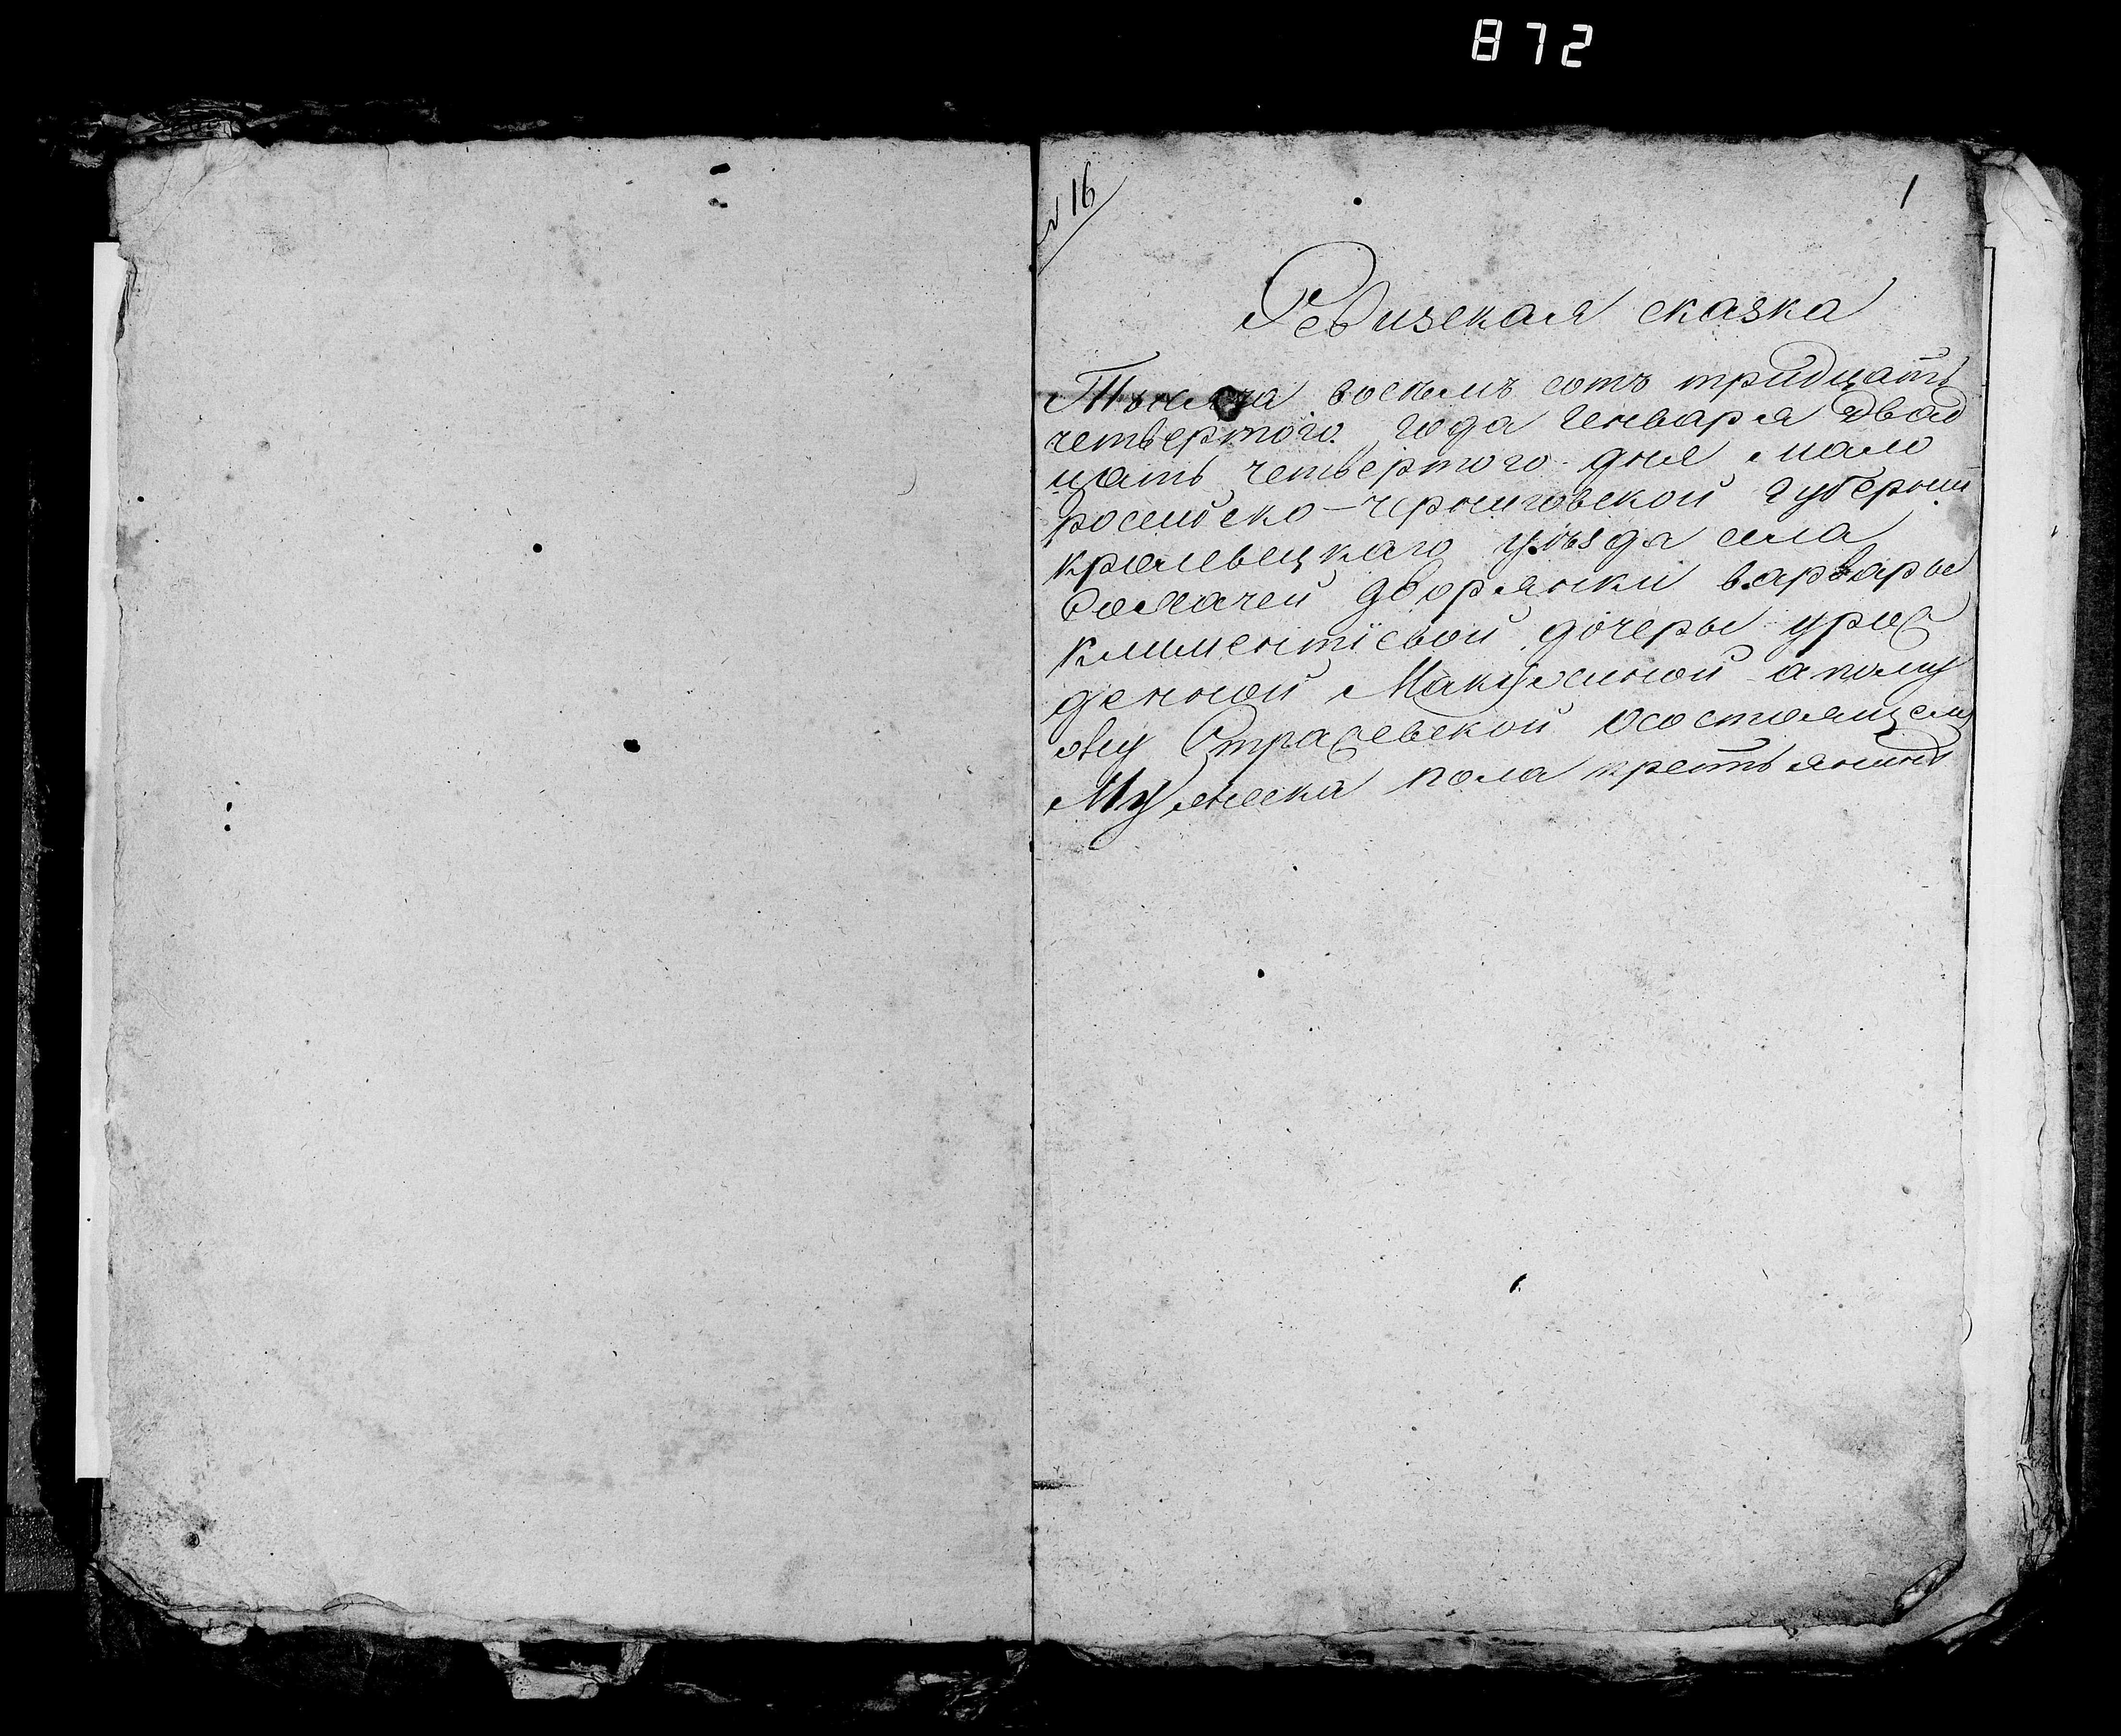 872
№ 16
1
Ревизская сказка
Тысяча восемъ сотъ тридцать
четвертого года генваря двад
цать четвертого дня мало
российско-черниговской губернии
кролевецкаго уѣзда села
дворянки варвары
климентiевой дочеры урож
денной а пому
жу Стражевской осостоящему
Мужеска пола крестьянинѣ